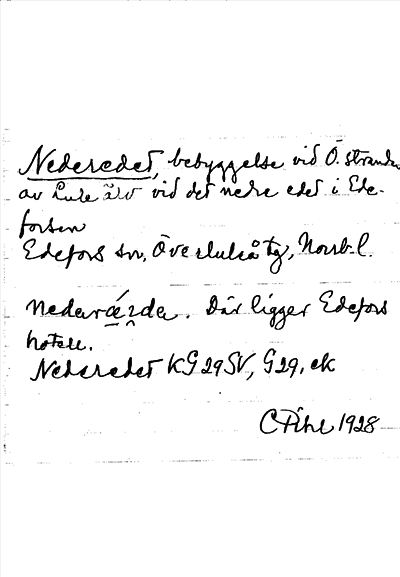 Nederedet, bebyggelse vid Ö. stranden
av Lule älv vid det nedre edet i Ede-
forsen
Edefors sn, Överluleå tg, Norrb. l.
nedaræʒda. Där ligger Edefors
hotell.
Nederedet KG 29 SV, G 29, ek
C Pihl 1928